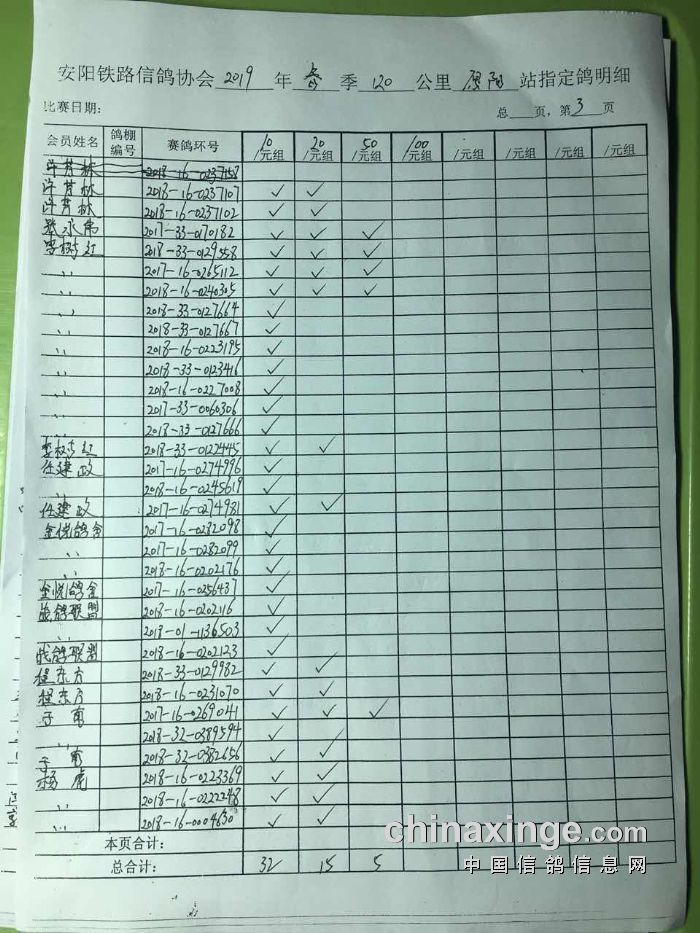 安阳铁路信鸽协会 2019 年 春 季 120 公里 原阳 站指定鸽明细
比赛日期: 总 页, 第 3 页
会员姓名 鸽棚编号 赛鸽环号 10/元组 20/元组 50/元组 100/元组 /元组 /元组 /元组 /元组
许芳林 2018-16-0237158
许芳林 2018-16-0237107 ✓ ✓
许芳林 2018-16-0237102 ✓ ✓
2017-33-0170182 ✓ ✓ ✓
李树红 2018-33-0129558 ✓ ✓ ✓
〃 2017-16-0265112 ✓ ✓ ✓
〃 2018-16-0240305 ✓ ✓ ✓
〃 2018-33-0127664 ✓
〃 2018-33-0127667 ✓
〃 2018-16-0223195 ✓
〃 2018-33-0123416 ✓
〃 2018-16-0227008 ✓
〃 2017-33-0060306 ✓
〃 2018-33-0127666 ✓
李树红 2018-33-0122445 ✓ ✓
任建政 2017-16-0274996 ✓
〃 2018-16-0245619 ✓
任建政 2017-16-0274981 ✓ ✓
金悦鸽舍 2017-16-0282098 ✓
〃 2017-16-0282099 ✓
〃 2018-16-0202176 ✓
金悦鸽舍 2017-16-0256437 ✓
战鸽联盟 2018-16-0202116 ✓
〃 2018-01-1136503 ✓
战鸽联盟 2018-16-0202123 ✓
程东方 2018-33-0129982 ✓ ✓
程东方 2018-16-0231070 ✓ ✓
2017-16-0269041 ✓ ✓ ✓
〃 2018-32-0389594 ✓ ✓
2018-32-0382656 ✓ ✓
杨虎 2018-16-0223369 ✓ ✓
〃 2018-16-0222248 ✓ ✓
〃 2018-16-0004630 ✓ ✓
本页合计:
总合计: 32 15 5
chinaxinge.com
中国信鸽信息网